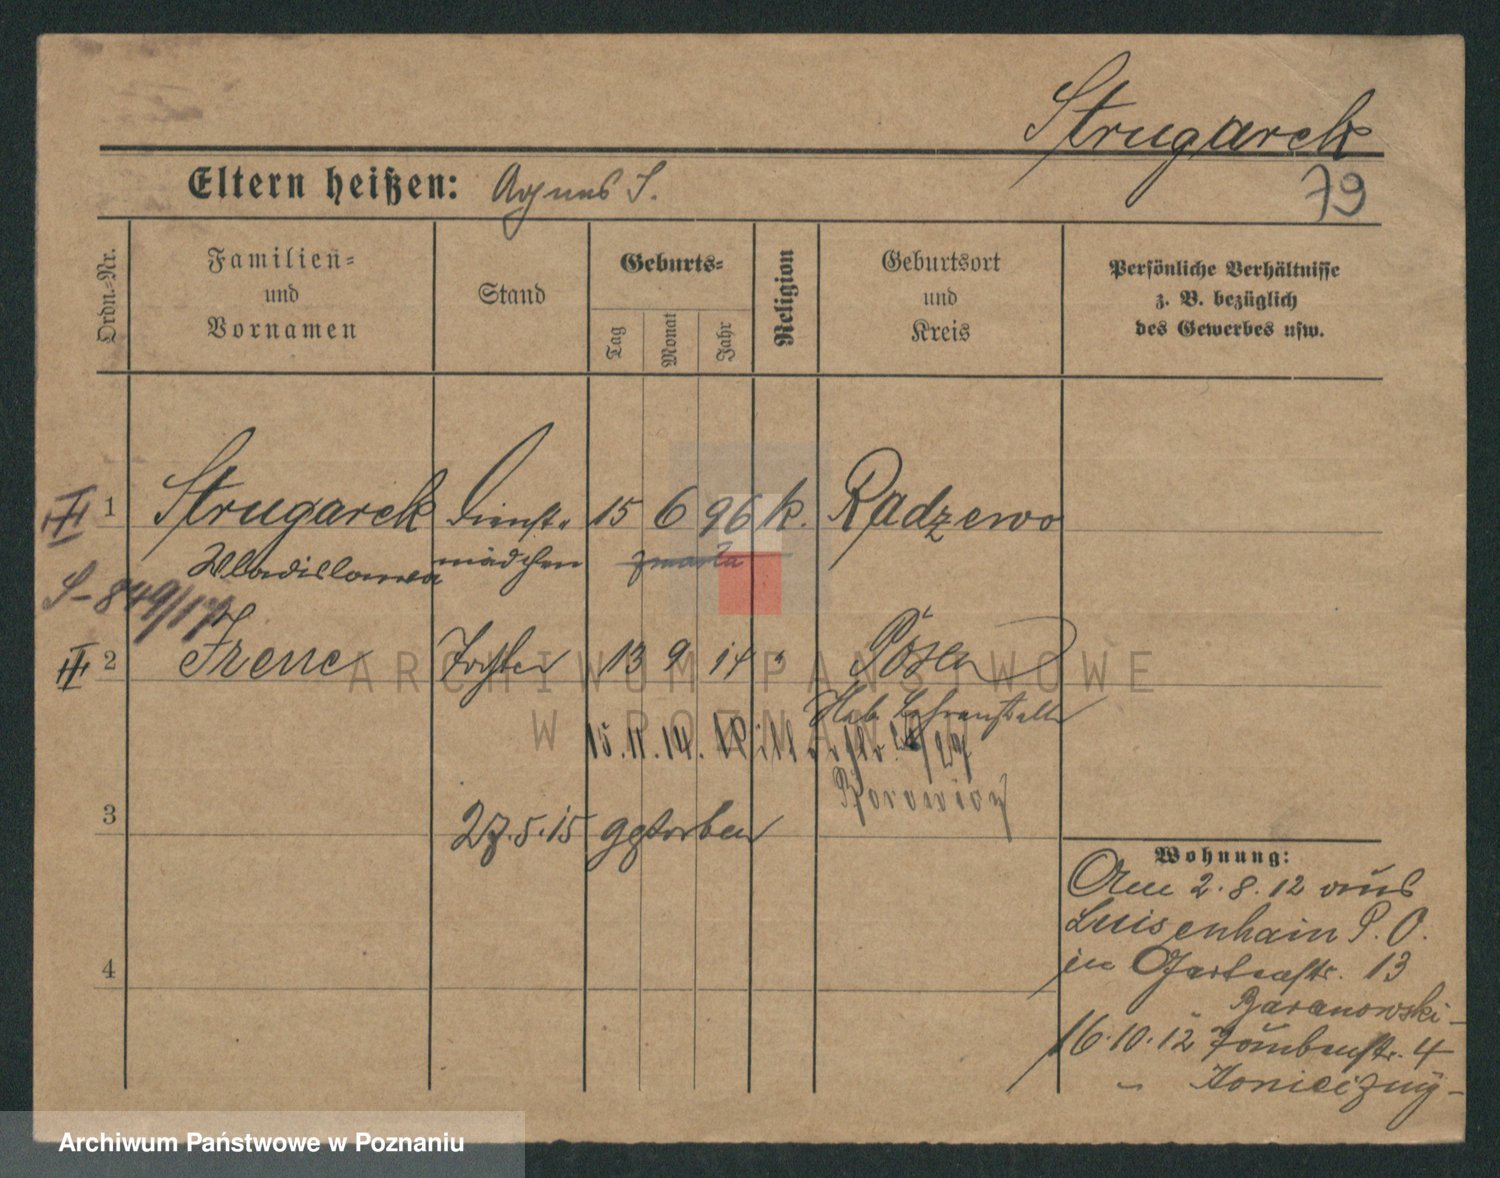 Strugarek
79
Eltern heißen: Agnes S.
Ordn.-Nr.
Familien-
und
Vornamen
Stand
Geburts-
Tag
Monat
Jahr
Religion
Geburtsort
und
Kreis
Persönliche Verhältnisse
z. B. bezüglich
des Gewerbes usw.
III 1 Strugarek Dienst- 15 6 96 k. Radzewo
Wladislawa mädchen zmarła
S-849/17
III 2 Irene Tochter 13 9 14 " Posen
Heb. Lehranstalt
15.11.14.
3
27.5.15 gestorben
4
Wohnung:
Am 2.8.12 aus
Luisenhain P. O.
in Gartenstr. 13
Baranowski
16.10.12 Taubenstr. 4
ARCHIWUM PAŃSTWOWE
W POZNANIU
Archiwum Państwowe w Poznaniu